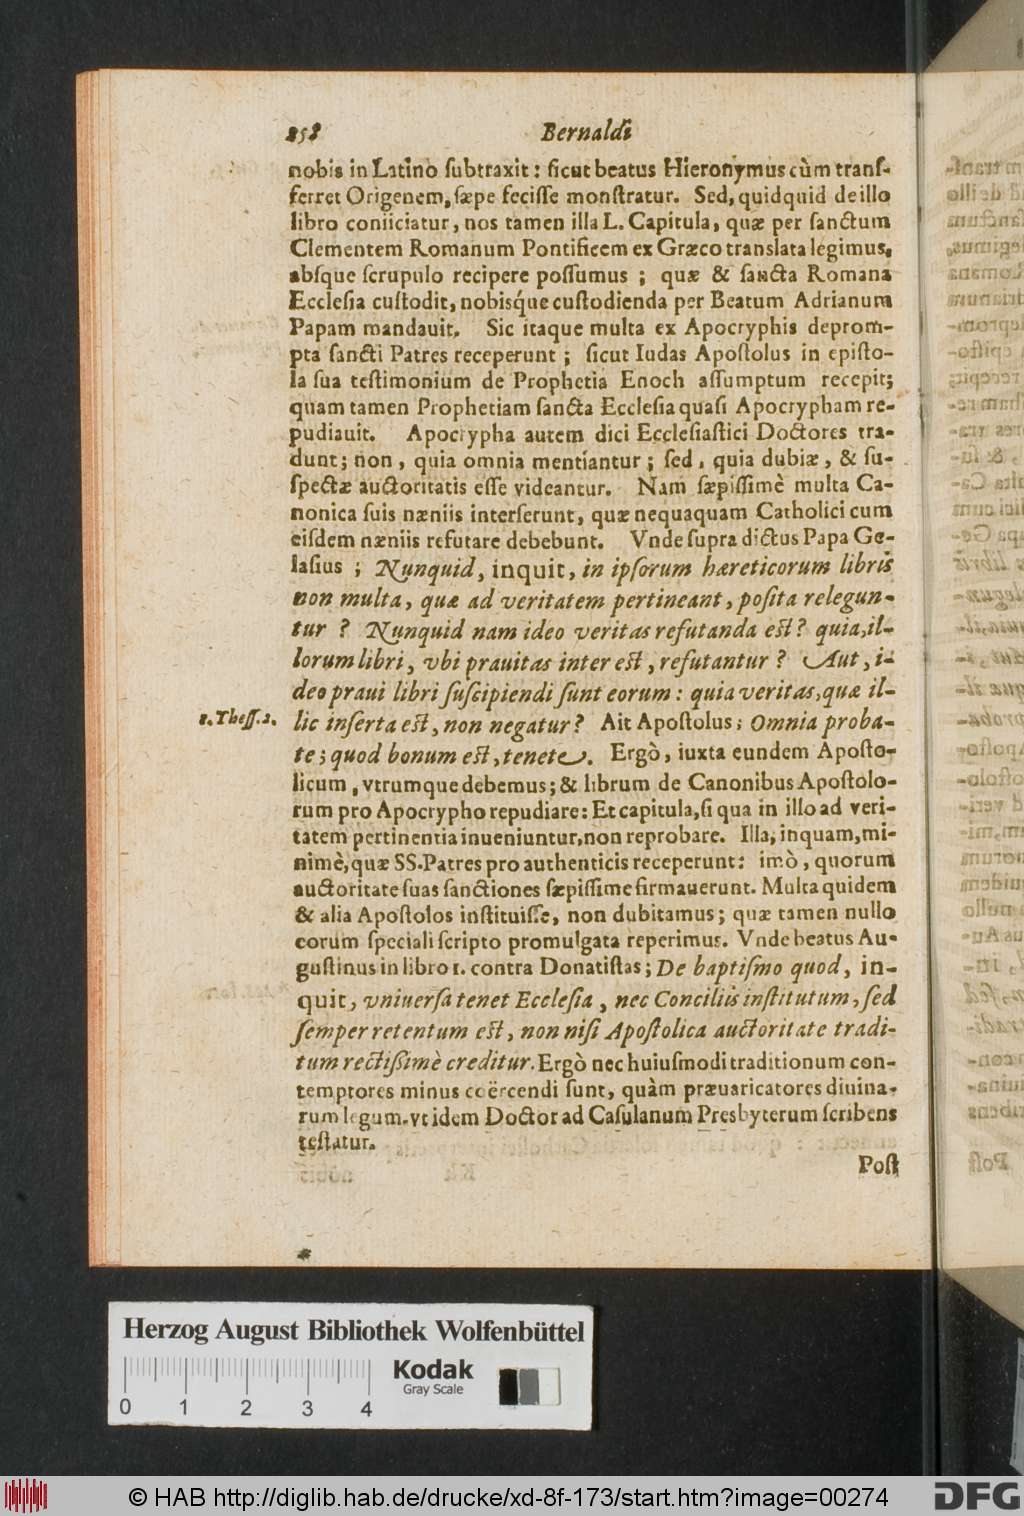 258 Bernaldi
nobis in Latino subtraxit: sicut beatus Hieronymus cùm trans-
ferret Origenem, sæpe fecisse monstratur. Sed, quidquid de illo
libro coniiciatur, nos tamen illa L. Capitula, quæ per sanctum
Clementem Romanum Pontificem ex Græco translata legimus,
absque scrupulo recipere possumus; quæ & sancta Romana
Ecclesia custodit, nobisque custodienda per Beatum Adrianum
Papam mandauit. Sic itaque multa ex Apocryphis deprom-
pta sancti Patres receperunt; sicut Iudas Apostolus in episto-
la sua testimonium de Prophetia Enoch assumptum recepit;
quam tamen Prophetiam sancta Ecclesia quasi Apocrypham re-
pudiauit. Apocrypha autem dici Ecclesiastici Doctores tra-
dunt; non, quia omnia mentiantur; sed, quia dubiæ, & su-
spectæ auctoritatis esse videantur. Nam sæpissimè multa Ca-
nonica suis næniis interserunt, quæ nequaquam Catholici cum
eisdem næniis refutare debebunt. Vnde supra dictus Papa Ge-
lasius; Nunquid, inquit, in ipsorum hæreticorum libris
non multa, quæ ad veritatem pertineant, posita relegun-
tur? Nunquid nam ideo veritas refutanda est? quia, il-
lorum libri, vbi prauitas inter est, refutantur? Aut, i-
deo praui libri suscipiendi sunt eorum: quia veritas, quæ il-
1. Thess. 2. lic inserta est, non negatur? Ait Apostolus; Omnia proba-
te; quod bonum est, tenete. Ergò, iuxta eundem Aposto-
licum, vtrumque debemus; & librum de Canonibus Apostolo-
rum pro Apocrypho repudiare: Et capitula, si qua in illo ad veri-
tatem pertinentia inueniuntur, non reprobare. Illa, inquam, mi-
nimè, quæ SS. Patres pro authenticis receperunt: imò, quorum
auctoritate suas sanctiones sæpissime firmauerunt. Multa quidem
& alia Apostolos instituisse, non dubitamus; quæ tamen nullo
eorum speciali scripto promulgata reperimus. Vnde beatus Au-
gustinus in libro 1. contra Donatistas; De baptismo quod, in-
quit, vniuersa tenet Ecclesia, nec Conciliis institutum, sed
semper retentum est, non nisi Apostolica auctoritate tradi-
tum rectissimè creditur. Ergò nec huiusmodi traditionum con-
temptores minus coërcendi sunt, quàm præuaricatores diuina-
rum legum. vt idem Doctor ad Casulanum Presbyterum scribens
testatur.
Post
Herzog August Bibliothek Wolfenbüttel
Kodak
Gray Scale
0 1 2 3 4
© HAB http://diglib.hab.de/drucke/xd-8f-173/start.htm?image=00274
DFG